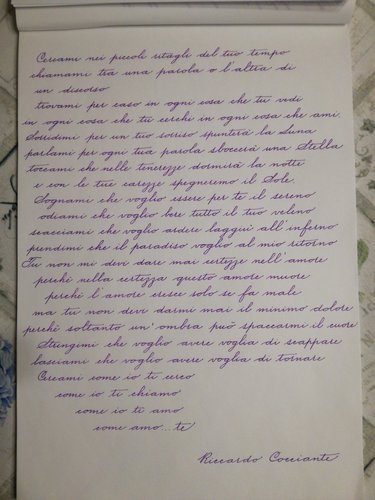 Cercami nei piccoli ritagli del tuo tempo
chiamami tra una parola o l'altra di
un discorso
trovami per caso in ogni cosa che tu vedi
in ogni cosa che tu cerchi in ogni cosa che ami.
Sorridimi per un tuo sorriso spunterà la Luna
parlami per ogni tua parola sboccerà una Stella
toccami che nelle tenerezze dormirà la notte
e con le tue carezze spegneremo il Sole.
Sognami che voglio essere per te il sereno
odiami che voglio bere tutto il tuo veleno
scacciami che voglio ardere laggiù all'inferno
prendimi che il paradiso voglio al mio ritorno
Tu non mi devi dare mai certezze nell'amore
perché nella certezza questo amore muore
perché l'amore cresce solo se fa male
ma tu non devi darmi mai il minimo dolore
perché soltanto un'ombra può spaccarmi il cuore
Stringimi che voglio avere voglia di scappare
lasciami che voglio avere voglia di tornare
Cercami come io ti cerco
come io ti chiamo
come io ti amo
come amo...te
Riccardo Cocciante